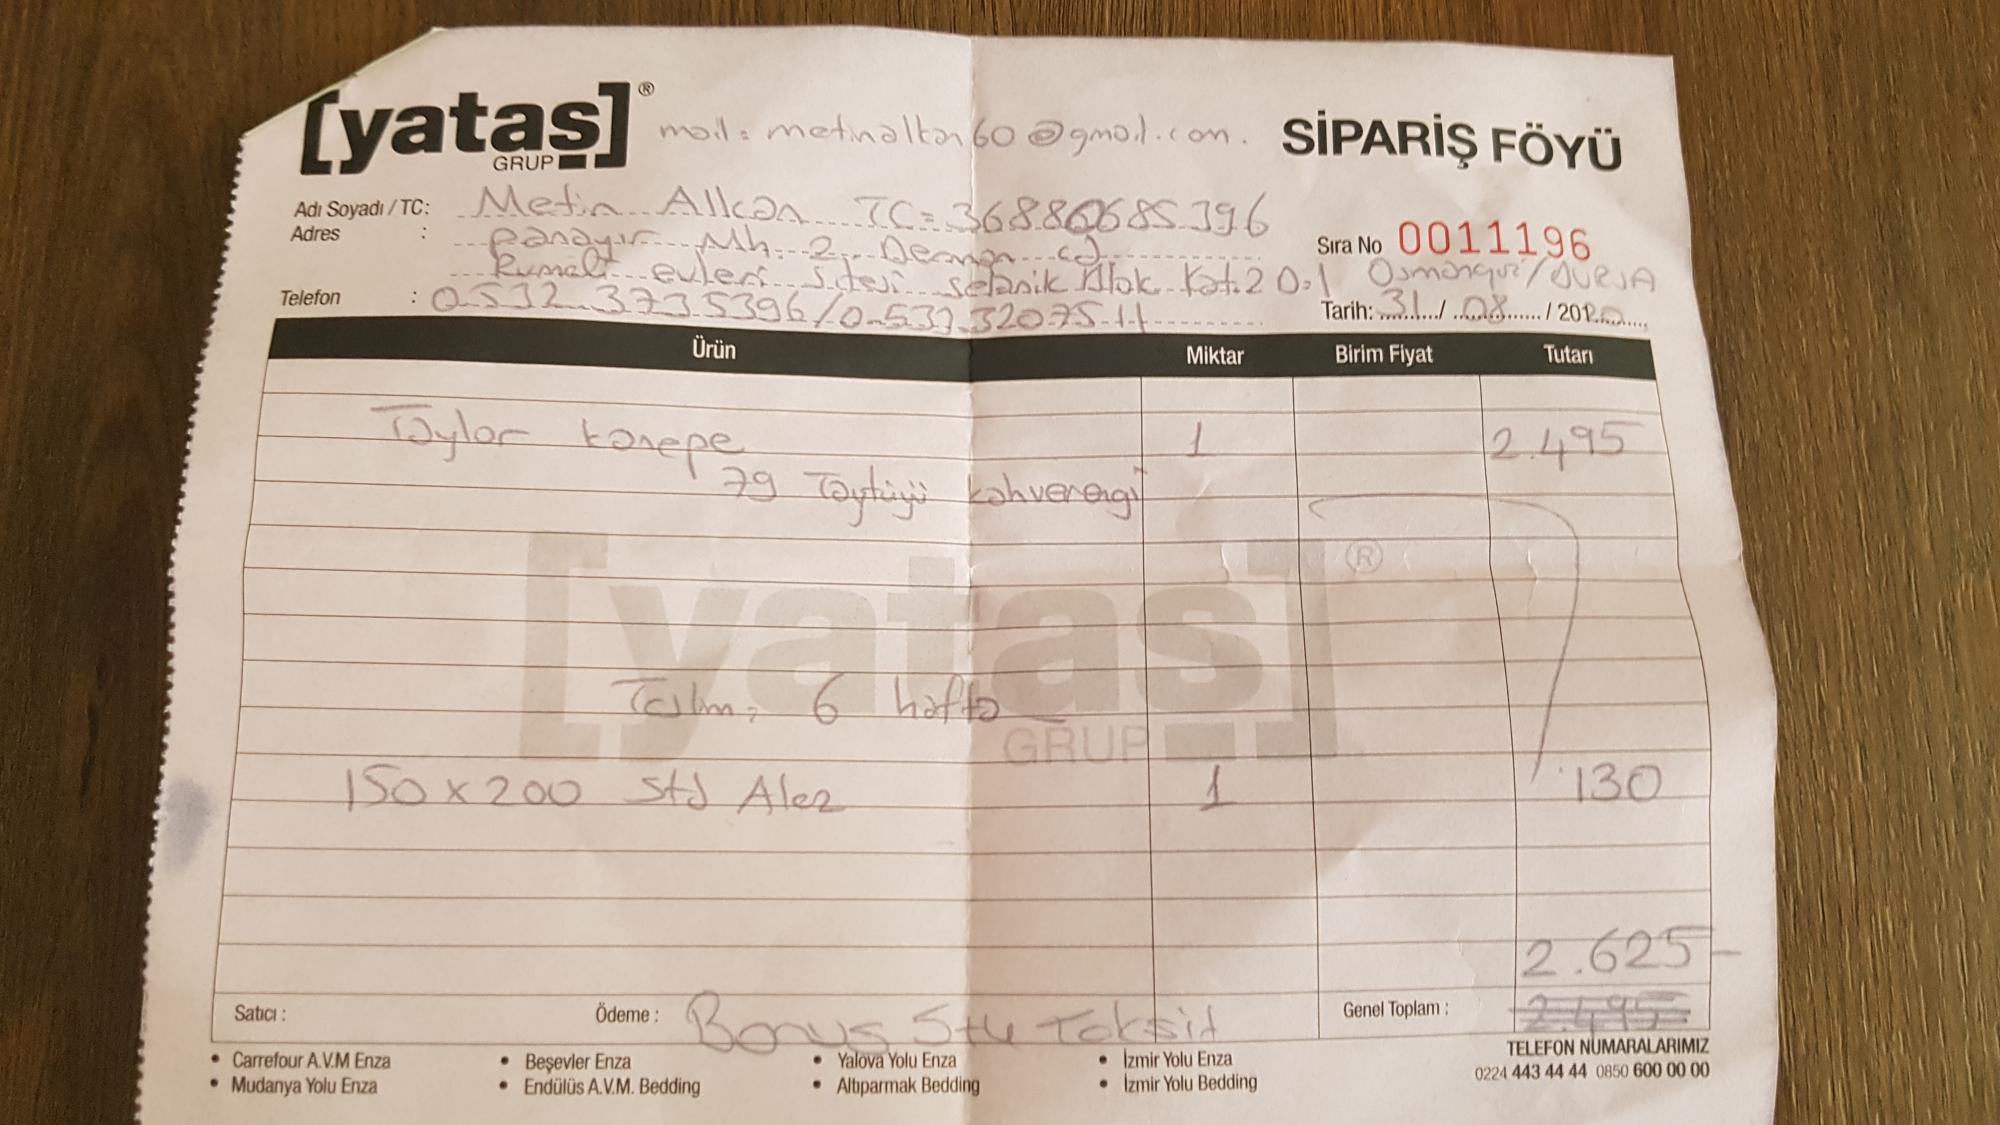 [yataş]® GRUP mail: metinalkan60@gmail.com. SİPARİŞ FÖYÜ
Adı Soyadı / TC: Metin Alkan TC=36886685396
Adres : Panayır Mh. 2. Deman cd
Sıra No 0011196
Rumeli evleri sitesi selanik Blok Kat:2 D:1 Osmangazi/BURSA
Telefon : 0532 3735396/0537 3207511
Tarih: 31/08/2020
Ürün Miktar Birim Fiyat Tutarı
Taylor kanepe 1 2.495
79 Taytüyü kahverengi
[yataş]® GRUP
Teslim: 6 hafta
150x200 Std Alez 1 130
2.625-
Satıcı : Ödeme : Bonus 5+4 Taksit Genel Toplam : 2.495
• Carrefour A.V.M Enza • Beşevler Enza • Yalova Yolu Enza • İzmir Yolu Enza TELEFON NUMARALARIMIZ
• Mudanya Yolu Enza • Endülüs A.V.M. Bedding • Altıparmak Bedding • İzmir Yolu Bedding 0224 443 44 44 0850 600 00 00